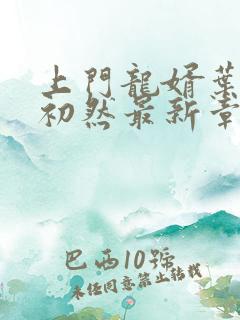 上門龍婿葉
初然最新章
巴西10號
未经同意禁止转载